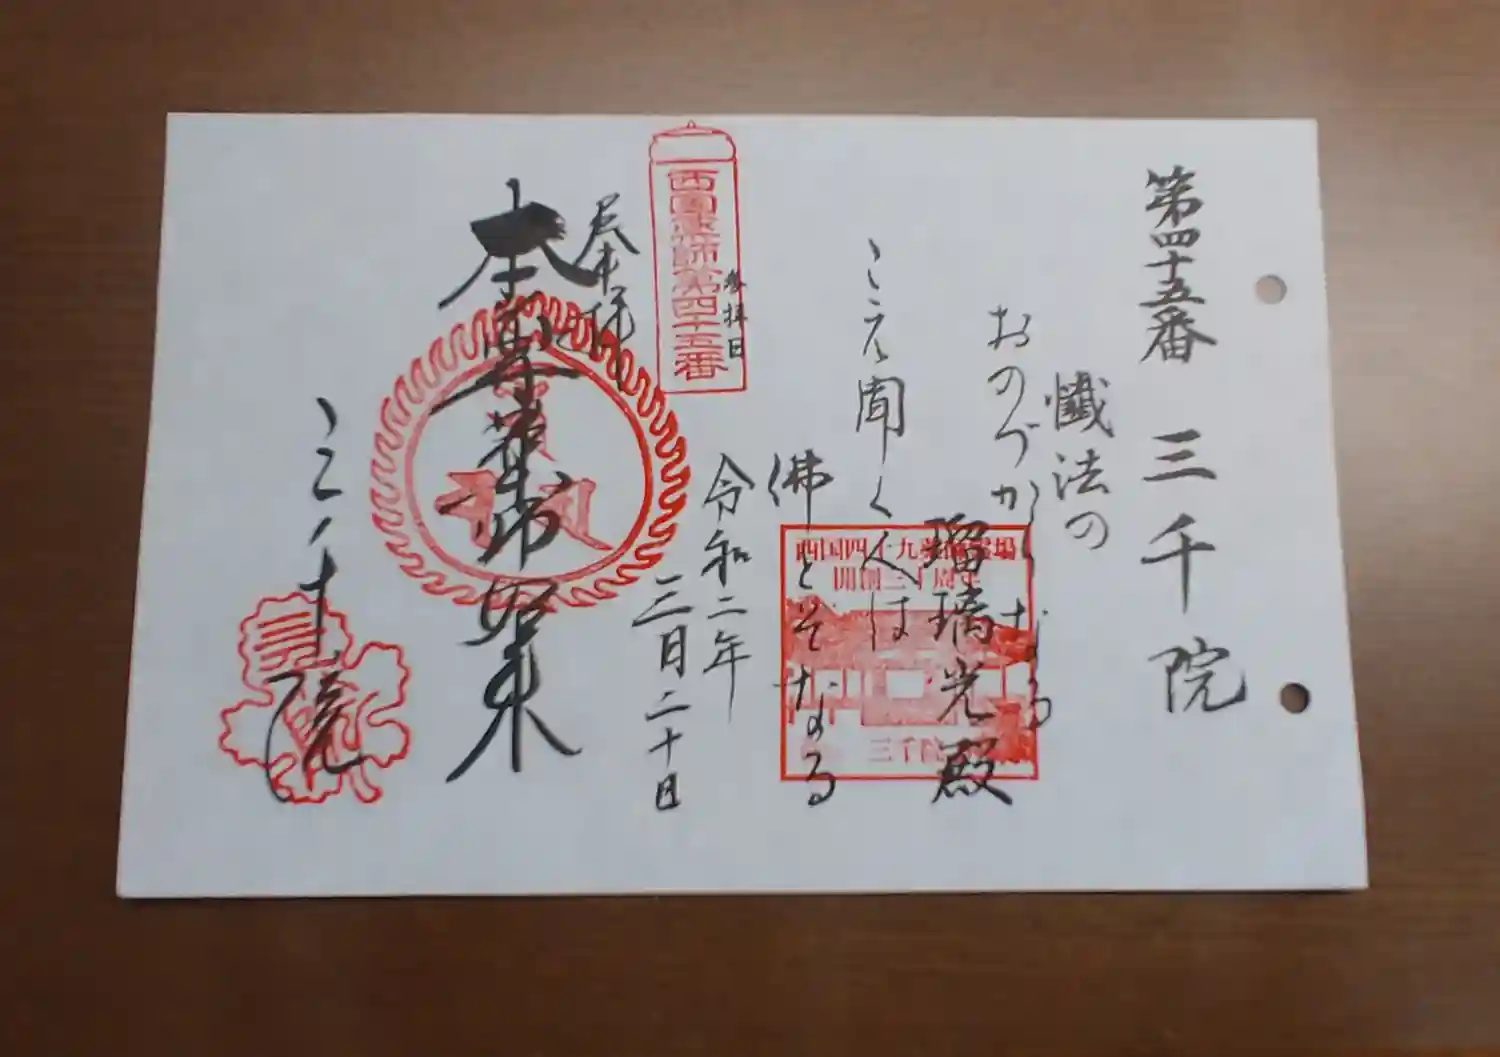 第四十五番 三千院
懺法の
おのづからなる
瑠璃光殿
こえ聞く人は
佛とぞなる
西国四十九薬師霊場
開創三十周年
三千院
参拝日
令和二年
三月二十日
西國薬師第四十五番
奉拝
本尊薬師如来
三千院